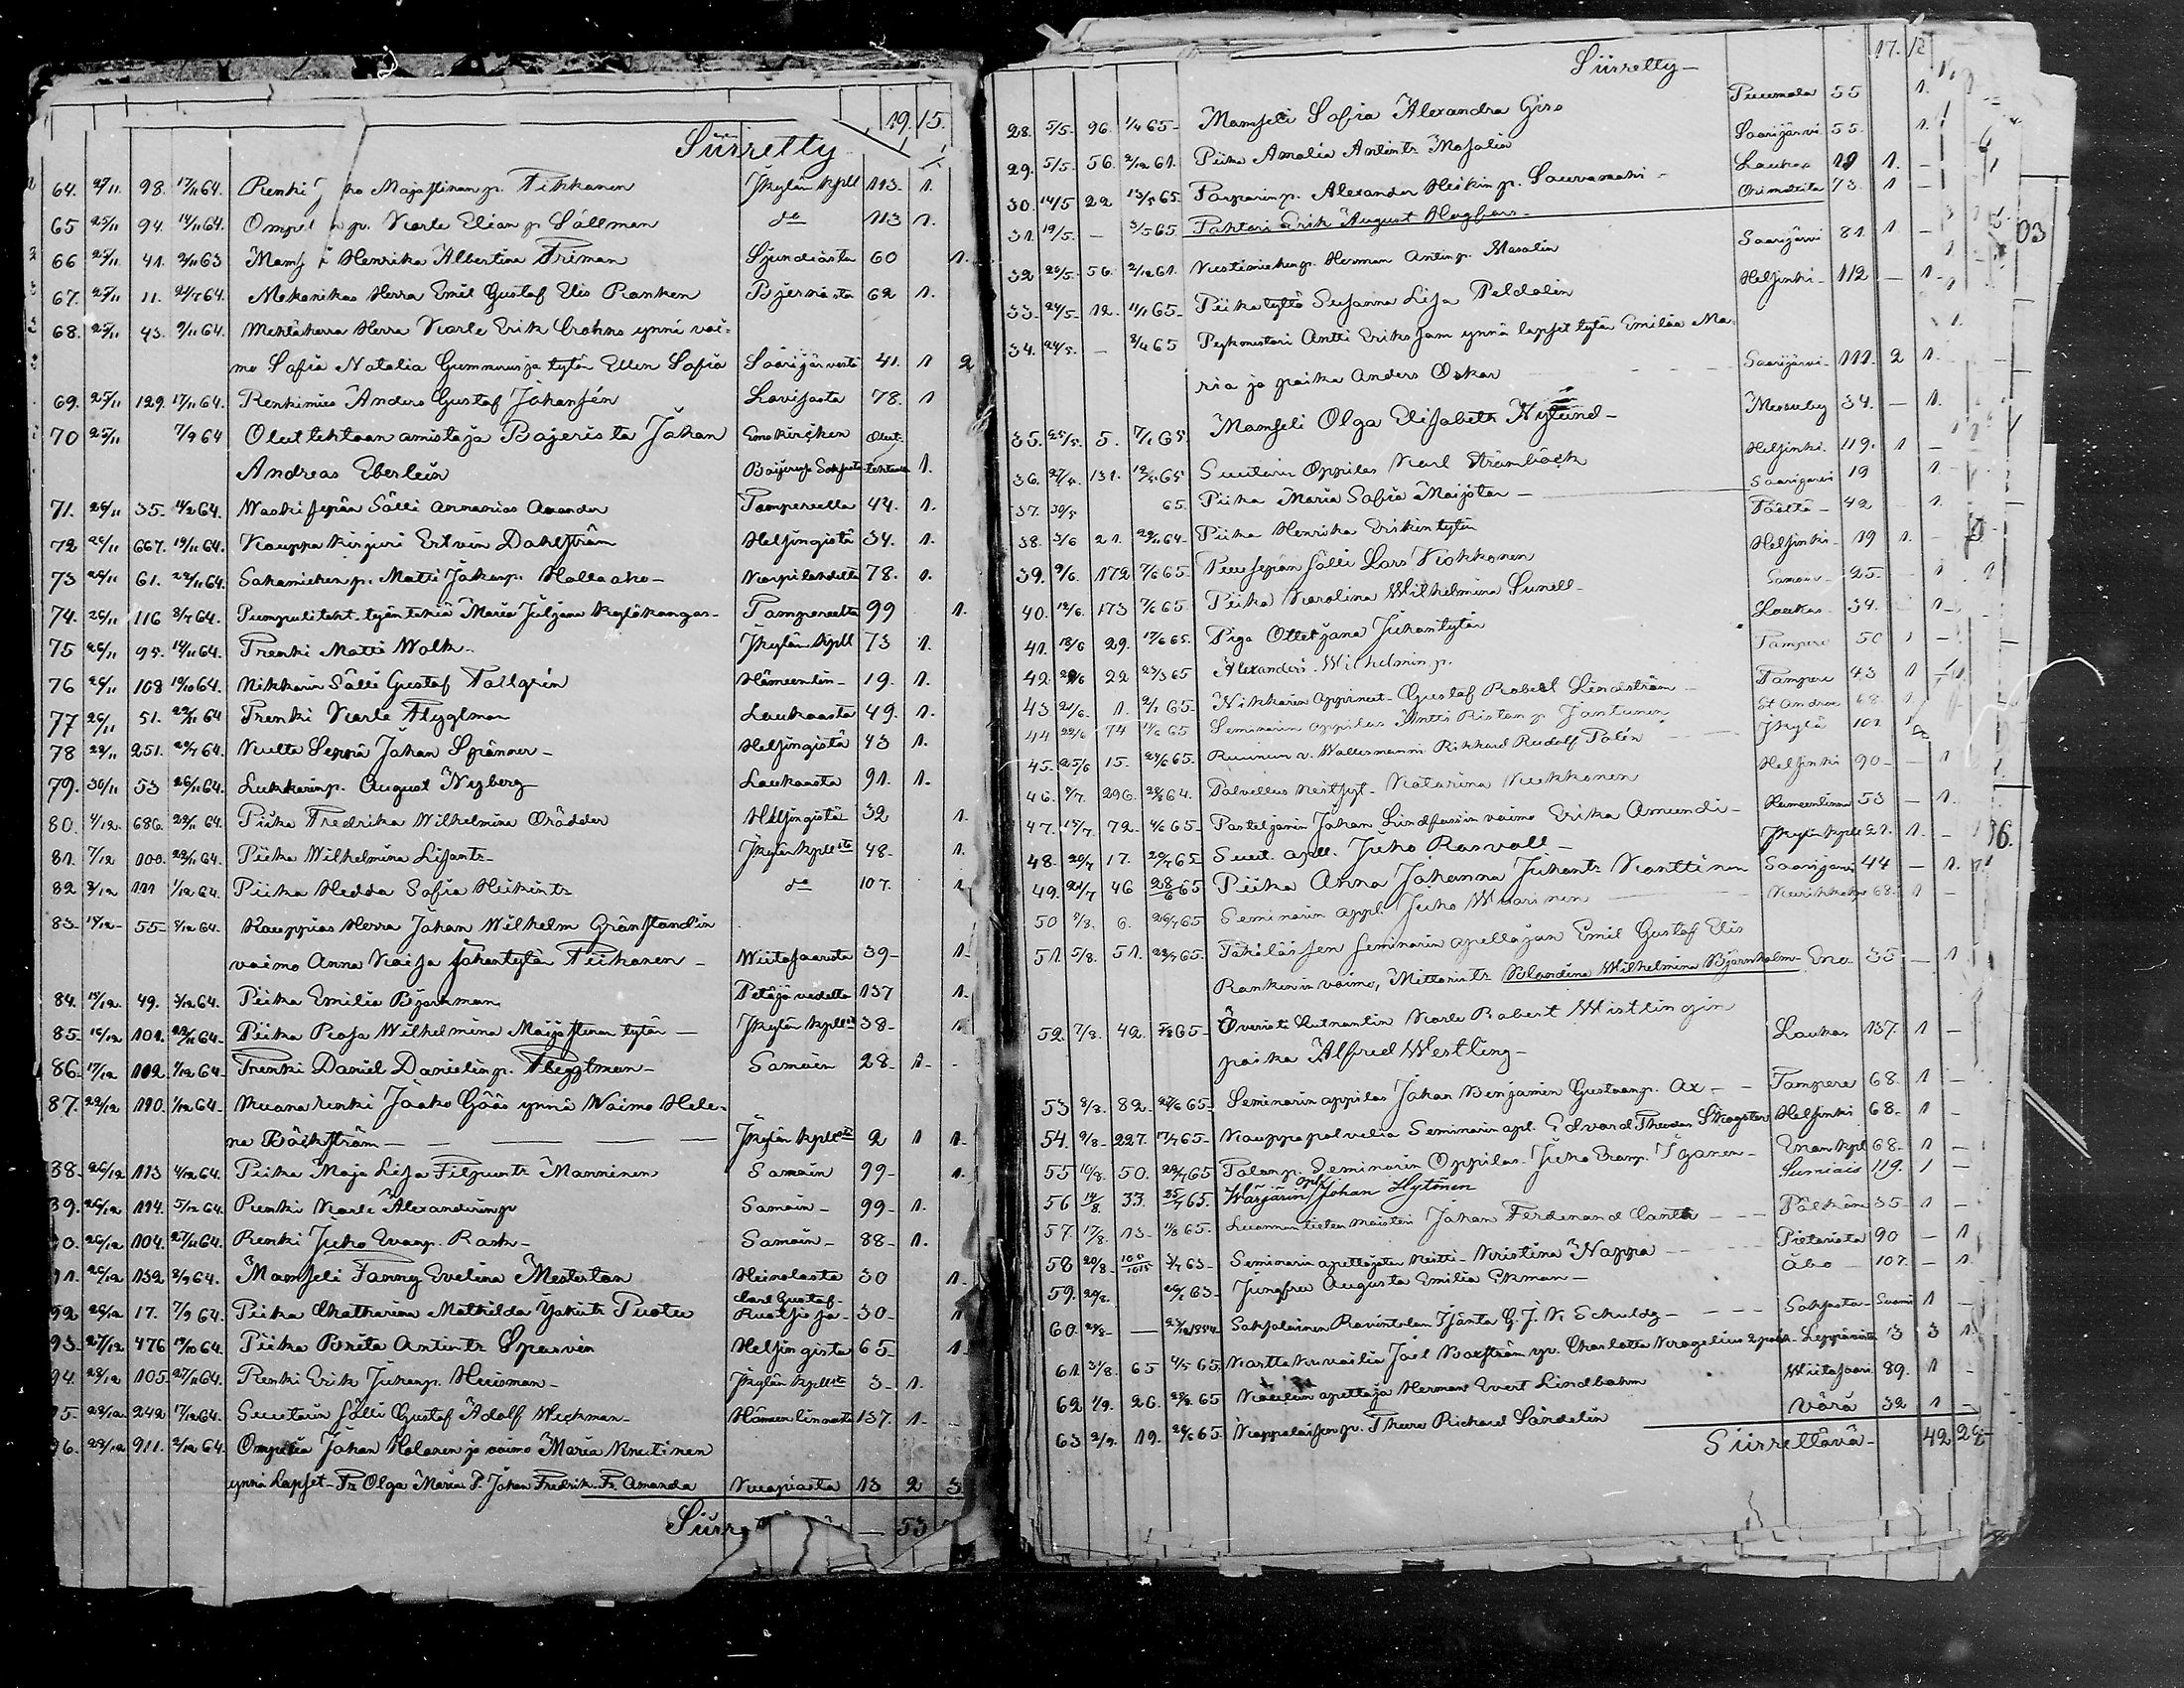 19. 15.
Siirretty
64. 25/11 98. 17/11 64. Renki J ho Majastinan p. Tikkanen Jkylän kpll 113. 1.
65 25/11 94. 14/11 64. Ompel n p. Karle Elian p Sällman do 113 1.
66 25/11 41. 2/11 63 Mams Henrika Albertina Friman Sjundiästa 60 1.
67. 25/11 11. 21/7 64. Mekanikas Herra Emil Gustaf Elis Ranken Bjernåsta 62 1.
68. 25/11 43. 9/11 64. Mehtäherra Herra Karle Erik Crohns ynnä vai=
mo Sofia Natalia Gummerus ja tytär Ellen Sofia Saarijärvestä 41. 1 2
69. 25/11 129. 17/11 64. Renkimies Anders Gustaf Johansén Lovisasta 78. 1
70 25/11 7/9 64 Oluttehtaan amistaja Bajerista Johan Emokirchen Olut-
Andreas Eberlein Baijerys Saksasta tehtaan 1.
71. 26/11 35. 14/2 64. Waskisepän Sälli Annanias Anander Tampereelta 44. 1.
72 26/11 667. 19/11 64. Kauppakirjuri Edvin Dahlström Helsingistä 34. 1.
73 26/11 61. 22/11 64. Sakamiehen p. Matti Jakonp. Hallaaho Korpilahdelta 78. 1.
74. 26/11 116 8/7 64. Pumpuliteht. työntekiä Maria Juljana Kyläkangas Tampereelta 99 1.
75 26/11 95. 14/11 64. Trenki Matti Wolk Jkylän kpll 73 1.
76 26/11 108 19/10 64. Nikkarin Sälli Gustaf Tallgrén Hämeenlin- 19. 1.
77 26/11 51. 22/11 64 Trenki Karle Flygtman Laukaasta 49. 1.
78 29/11 251. 29/7 64. Kulta Seppä Johan Spänner Helsingistä 43 1.
79. 30/11 53 26/11 64. Lukkarinp. August Nyberg Laukaasta 91. 1.
80. 4/12. 686. 29/11 64. Piika Fredrika Wilhelmina Orädder Helsingistä 32 1.
81. 7/12 100. 28/11 64. Piika Wilhelmina Lisantr. Jkylän kpllsta 48- 1.
82 8/12 111 1/12 64. Piika Hedda Sofia Heikintr. do 107. 1
83- 14/12- 55- 8/12 64. Kauppias Herra Johan Wilhelm Grönstandin
vaimo Anna Kaisa Johantytär Tiikanen Wiitasaaresta 39- 1-
84. 15/12. 49. 3/12 64. Piika Emilia Björkman Petäjävedeltä 137 1.
85- 16/12 101. 22/11 64- Piika Rosa Wilhelmina Maijastinan tytär — Jkylän kpllsta 38- 1
86- 17/12 102. 1/12 64- Trenki Daniel Danielinp. Flygtman- Samoin 28- 1-
87. 22/12 110. 1/12 64- Muona renki Jaako Göös ynnä Waimo Hele-
na Bäckström — Jkylän kpllsta 2 1 1.
88. 26/12 113 4/12 64. Piika Maja Lisa Filpuntr Manninen Samoin 99- 1.
39. 26/12 114. 5/12 64. Renki Karle Alexanderinp Samoin- 99- 1.
0. 26/12 104. 27/11 64. Renki Juho Evanp. Rask- Samoin- 88- 1.
91. 26/12 132 2/9 64. Mamseli Fanny Evelina Mestertan Heinolasta 30 1-
92 26/12 17. 7/9 64. Piika Chatharina Mathilda Jakintr Puotu Carl Gustaf- Ruotsissa- 30- 1
93- 27/12 476 19/10 64. Piika Brita Antintr Sparvin Helsingista 65- 1-
94. 28/12 105- 27/11 64. Renki Erik Juhanp. Huisman- Jkylän kpllsta 3- 1.
95. 28/12 242 17/12 64. Suutarin Sälli Gustaf Adolf Weckman- Hämeenlinnasta 137. 1-
96. 29/12 911. 2/12 64. Ompelia Johan Holanen ja vaimo Maria Knutinen
ynnä Lapset- Tr Olga Maria P. Johan Fredrik Tr. Amanda Kuopiosta 13 2 3
Siirre — 53
17. 12
Siirretty-
28. 5/5- 96. 1/4 65- Mamseli Sofia Alexandra Giro Puumala 55 1.
29. 5/5- 56. 2/12 61. Piika Amalia Antintr Masalin Saarijärvi 55. 1.
30. 14/5 22 13/5 65. Parparinp. Alexander Heikinp. Sauvamäki- Laukas 19 1. -
31. 19/5. - 3/5 65 Tohtori Erik August Hagfors- Orimattila 73. 1 -
32 20/5. 56. 2/12 61. Kestimiehenp. Herman Antinp. Masalin Saarijärvi 81. 1 -
33. 24/5. 12. 11/1 65- Piikatyttö Susanna Lisa Peldolin Helsinki- 112 - 1.
34. 24/5. - 8/4 65 Pykmestari Antti Eriksson ynnä lapset tytär Emilia Ma-
ria ja poika Anders Oskar Saarijärvi- 111. 2 1.
35. 25/5. 5. 7/1 65. Mamseli Olga Elisabeth Nylund- Messuby 34. - 1.
36. 27/5. 131. 12/5 65 Suutarin Oppilas Karl Strömbäck Helsinki. 119. 1 -
37. 30/5 65. Piika Maria Sofia Maijstar — Saarijarvi 19 1.
38. 3/6 21. 29/11 64- Piika Henrika Erikintytär Töölta- 42 1.
39. 9/6. 172 7/6 65. Puusepän Sälli Lars Kokkonen Helsinki- 19 1. -
40. 12/6. 173 7/6 65. Piika Karolina Wilhelmina Sunell- Samoin- 25- - 1
41. 18/6 29. 17/6 65. Piga Ottetjana Juhantytär Laukas- 34. - 1-
42. 21/6 22 23/3 65 Alexanders Wilhelmin p. Tampere 50 1 -
43 21/6. 1. 2/1 65- Nikkarin oppineet- Gustaf Robert Lindström- Tampere 43 1
44 22/6 74 14/6 65 Seminarin oppilas Antti Ristan p Jantunen St Andrea 68. 1
45. 25/6 15. 24/6 65. Ruunun v. Wallesmanni Rikhard Rudolf Polén Jkylä 101 1
46. 8/7. 296. 28/3 64. Palvellus Neitsyt- Katarina Kukkonen Helsinki 90- - 1
47. 15/7. 72. 4/6 65- Posteljonin Johan Lindforssin vaimo Erika Amundi- Hämeenlinna 53 - 1.
48. 20/7 17. 20/7 65- Suut. opll. Juho Rasvall- Jkylän kpll 21. 1. -
49. 21/7 46 28/6 65 Piika Anna Johanna Juhantr Kanttinen Saarijarvi 44 - 1.
50 5/8. 6. 26/7 65 Seminarin appl. Juho Waarinen Kurikkaka 68. 1 -
51. 5/8. 51. 22/7 65. Täkäläissen seminarin apettajan Emil Gustaf Elis
Rankenin vaimo, Mittarintr. Blondina Wilhelmina Björnholm- Eno 35 - 1
52. 7/8. 42. 7/8 65- Överste lutnantin Karle Robert Wistlingin
poika Alfred Westling- Laukas 137. 1 -
53 8/8. 82. 27/6 65- Seminarin appilas Johan Benjamin Gustaanp. Ax- - Tampere 68. 1 -
54. 9/8- 227. 17/7 65- Kauppapalvelia Seminarin apl. Edvard Theodor Skogster Helsinki 68- 1 -
55 10/8. 50. 28/7 65 Talonp. Seminarin Oppilas- Juho Evanp. Ijänen- Enonkpl 68- 1 -
56 14/8. 33. 25/7 65. Wärjärin opl Johan Hytönen Sumiais 119. 1 -
57. 17/8. 13- 11/8 65. Luonnontieten maisteri Johan Ferdinand Canth — Pälkäne 35- 1 -
58 20/8- 100/1015 3/7 63- Seminarin apettajatar Neitti- Kristina Nappa Pietarista 90 - 1
59. 20/8. 20/7 63- Jungfru Augusta Emilia Ekman- Åbo- 107. - 1.
60. 24/8- — 1854- Saksalainen Ravintolan Isäntä G. J. N. Schuldz- Saksasta- Suomi 1 -
61. 31/8. 65 4/5 65. Karttakuvailia Joel Boxström yv. Charlotta Kragelius 2 poik- Leppävirta 3 3 1.
62 1/9. 26. 28/8. 65 Koulun apettaja Herman Evert Lindbohm Wiitasaari 89. 1 -
63 2/9. 19. 26/6 65. Kappalaissen p. Theere Richard Sandelin Vörå 32 1 -
Siirrettävä- 42 26-
03
86.